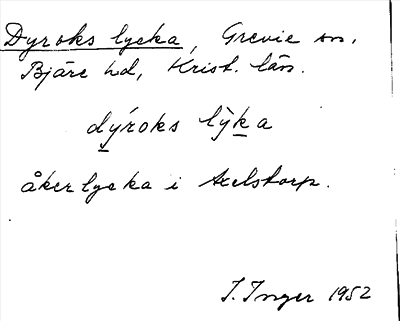 Dyroks lycka, Grevie sn,
Bjäre hd, Krist. län.
dýroks lỳka
åkerlycka i Axelstorp.
I. Inger 1952